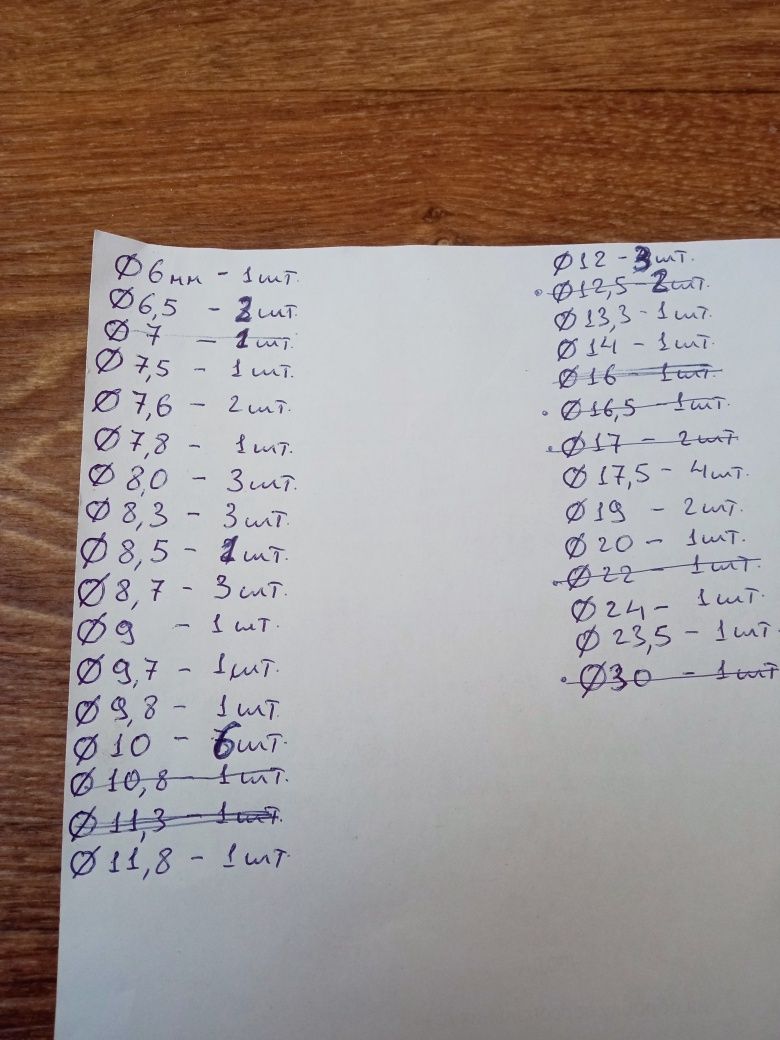 Ø 6 мм - 1 шт.
Ø 6,5 - 2 шт.
Ø 7 - 1 шт.
Ø 7,5 - 1 шт.
Ø 7,6 - 2 шт.
Ø 7,8 - 1 шт.
Ø 8,0 - 3 шт.
Ø 8,3 - 3 шт.
Ø 8,5 - 1 шт.
Ø 8,7 - 3 шт.
Ø 9 - 1 шт.
Ø 9,7 - 1 шт.
Ø 9,8 - 1 шт.
Ø 10 - 6 шт.
Ø 10,8 - 1 шт.
Ø 11,3 - 1 шт.
Ø 11,8 - 1 шт.
Ø 12 - 3 шт.
Ø 12,5 - 2 шт.
Ø 13,3 - 1 шт.
Ø 14 - 1 шт.
Ø 16 - 1 шт.
Ø 16,5 - 1 шт.
Ø 17 - 2 шт
Ø 17,5 - 4 шт.
Ø 19 - 2 шт.
Ø 20 - 1 шт.
Ø 22 - 1 шт.
Ø 24 - 1 шт.
Ø 23,5 - 1 шт.
Ø 30 - 1 шт